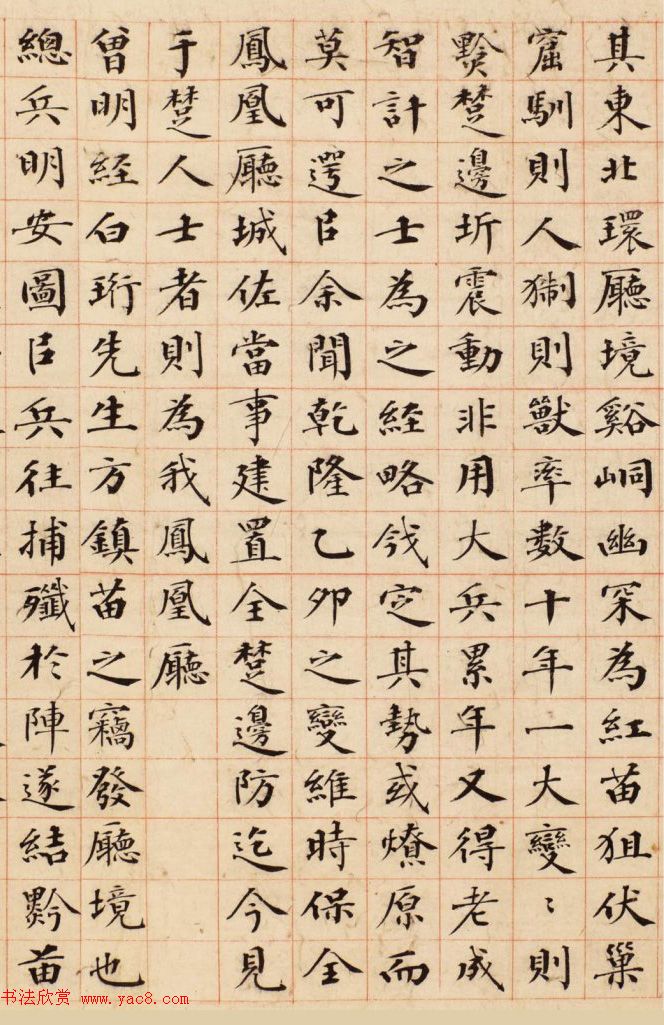 其東北環廳境谿峒幽罙為紅苗狙伏巢
窟馴則人猘則獸率數十年一大變〻則
黔楚邊圻震動非用大兵累年又得老成
智計之士為之經略戡定其勢或燎原而
莫可遏㠯余聞乾隆乙卯之變維時保全
鳳凰廳城佐當事建置全楚邊防迄今見
于楚人士者則為我鳳凰廳
曾明經白珩先生方鎮苗之竊發廳境也
總兵明安圖㠯兵往捕殲於陣遂結黔苗
书法欣赏 www.yac8.com